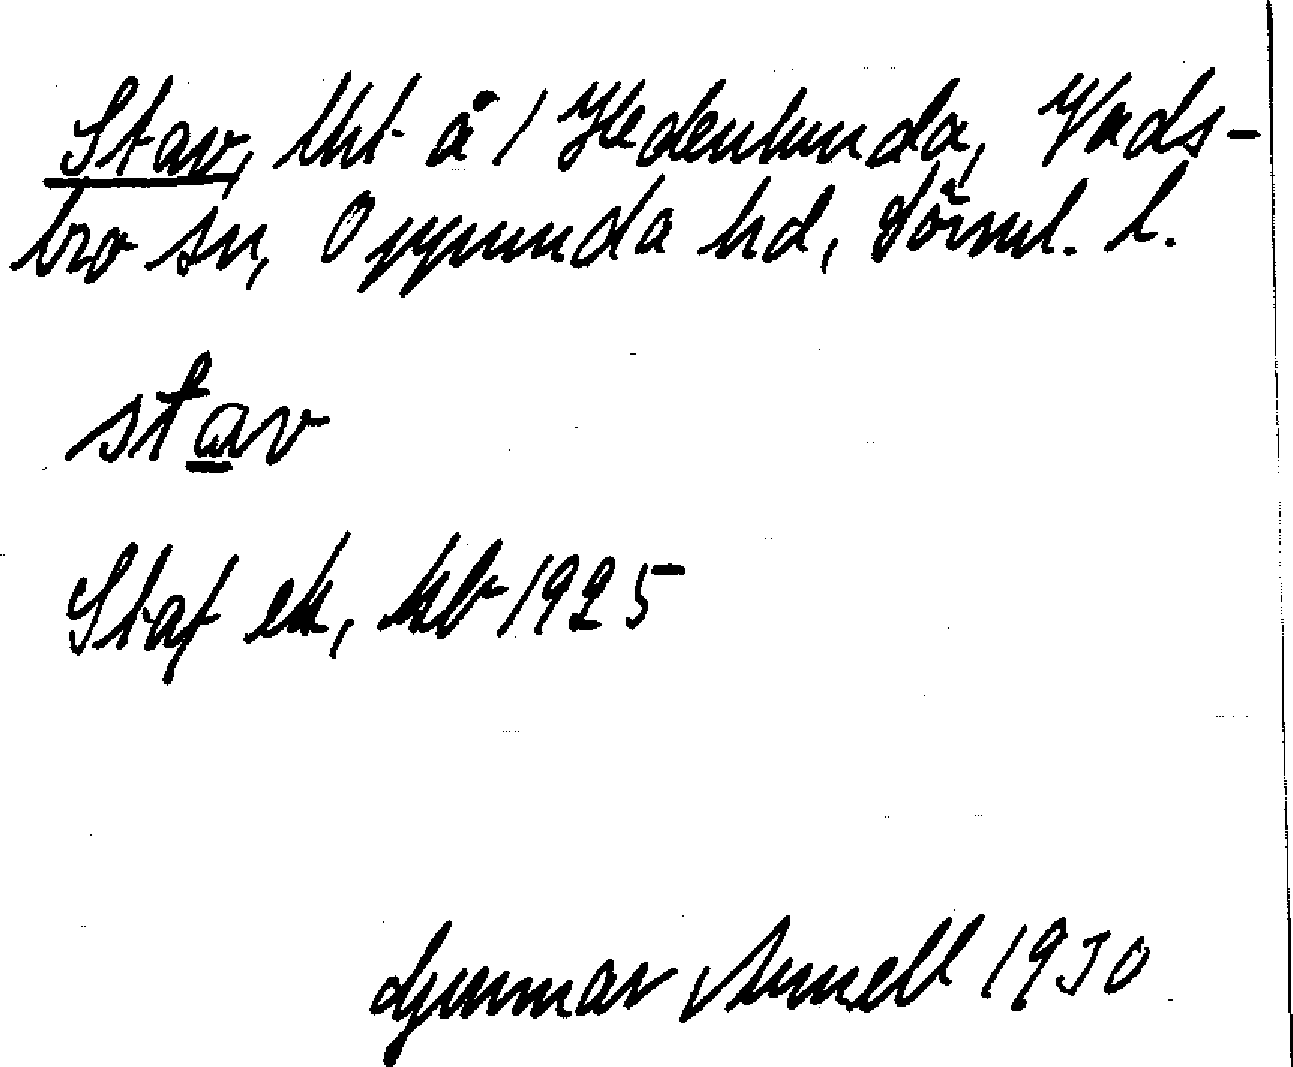 Stav, lht å 1 Hedenlunda, Vads-
bro sn, Oppunda hd, Sörml. l.
stav
Staf ek, kb 1925
Gunnar Arnell 1930